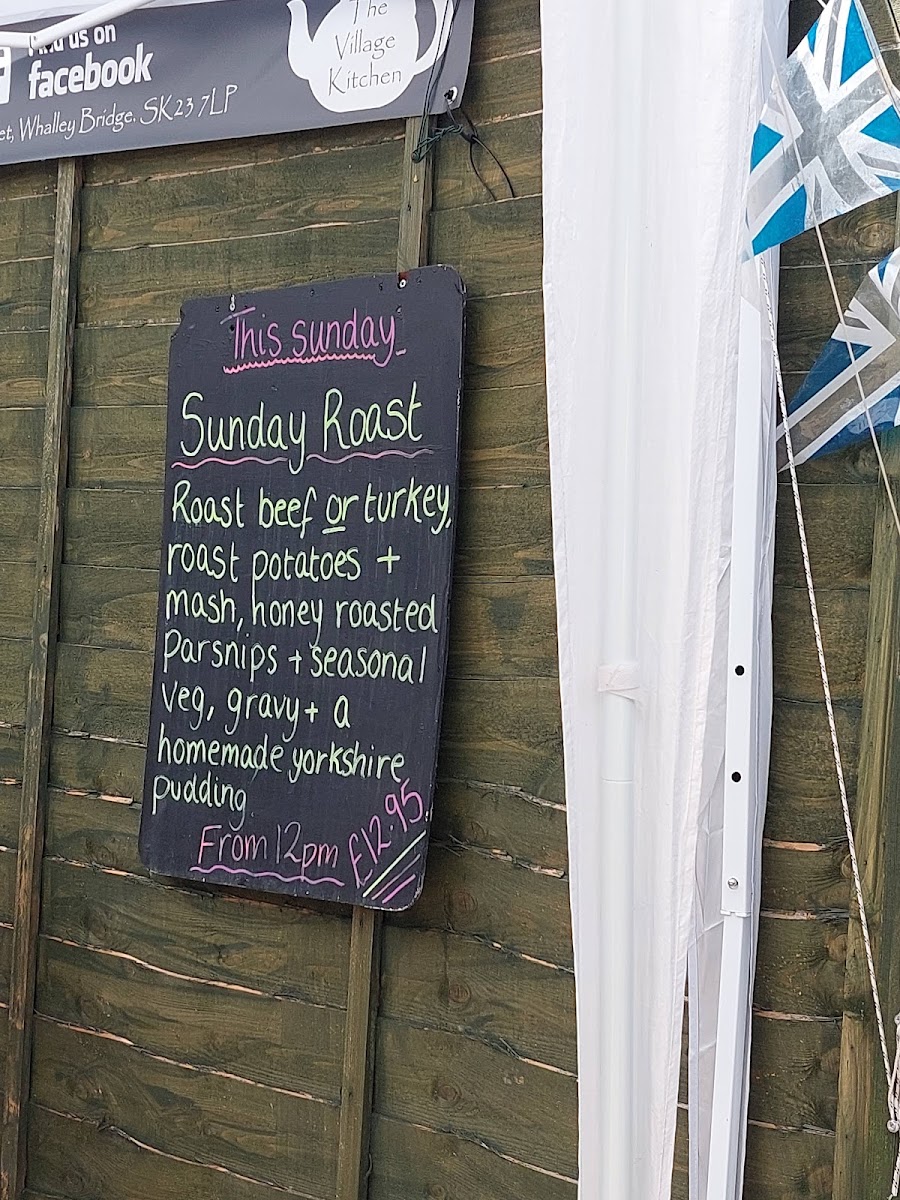 us on
facebook
The
Village
Kitchen
Whalley Bridge. SK23 7LP
This sunday
Sunday Roast
Roast beef or turkey,
roast potatoes +
mash, honey roasted
Parsnips + seasonal
veg, gravy + a
homemade yorkshire
pudding
From 12pm £12.95